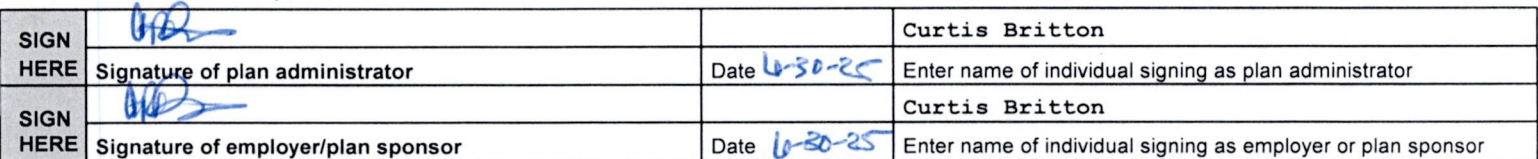 SIGN HERE Curtis Britton
Signature of plan administrator Date 6-30-25 Enter name of individual signing as plan administrator
SIGN HERE Curtis Britton
Signature of employer/plan sponsor Date 6-30-25 Enter name of individual signing as employer or plan sponsor